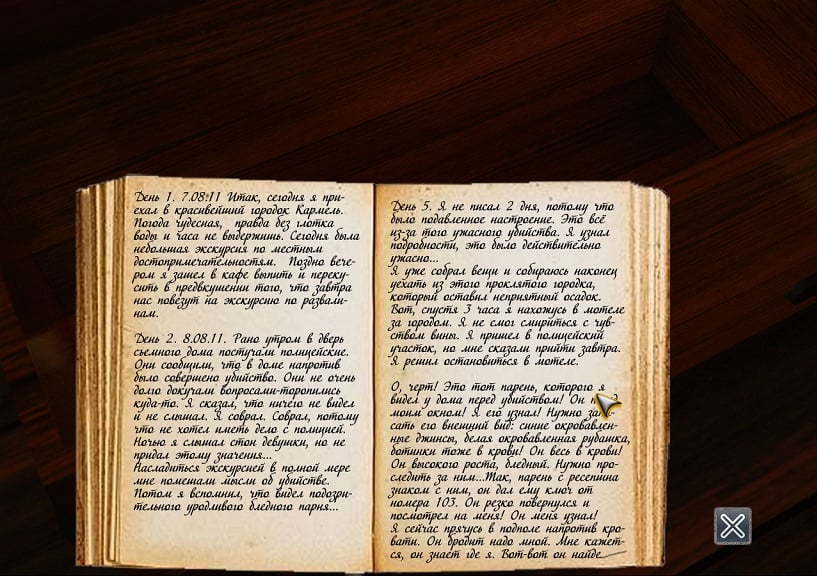 День 1. 7.08.11 Итак, сегодня я при-
ехал в красивейший городок Кармель.
Погода чудесная, правда без глотка
воды и часа не выдержишь. Сегодня была
небольшая экскурсия по местным
достопримечательностям. Поздно вече-
ром я зашел в кафе выпить и переку-
сить в предвкушении того, что завтра
нас повезут на экскурсию по развали-
нам.
День 2. 8.08.11. Рано утром в дверь
съемного дома постучали полицейские.
Они сообщили, что в доме напротив
было совершено убийство. Они не очень
долго докучали вопросами-торопились
куда-то. Я сказал, что ничего не видел
и не слышал. Я соврал. Соврал, потому
что не хотел иметь дело с полицией.
Ночью я слышал стон девушки, но не
придал этому значения...
Насладиться экскурсией в полной мере
мне помешали мысли об убийстве.
Потом я вспомнил, что видел подозри-
тельного уродливого бледного парня...
День 5. Я не писал 2 дня, потому что
было подавленное настроение. Это всё
из-за того ужасного убийства. Я узнал
подробности, это было действительно
ужасно...
Я уже собрал вещи и собираюсь наконец
уехать из этого проклятого городка,
который оставил неприятный осадок.
Вот, спустя 3 часа я нахожусь в мотеле
за городом. Я не смог смириться с чув-
ством вины. Я пришел в полицейский
участок, но мне сказали прийти завтра.
Я решил остановиться в мотеле.
О, черт! Это тот парень, которого я
видел у дома перед убийством! Он
моим окном! Я его узнал! Нужно
сать его внешний вид: синие окровавлен-
ные джинсы, белая окровавленная рубашка,
ботинки тоже в крови! Он весь в крови!
Он высокого роста, бледный. Нужно про-
следить за ним...Так, парень с ресепшна
знаком с ним, он дал ему ключ от
номера 103. Он резко повернулся и
посмотрел на меня! Он меня узнал!
Я сейчас прячусь в подполе напротив кро-
вати. Он бродит надо мной. Мне кажет-
ся, он знает где я. Вот-вот он найде